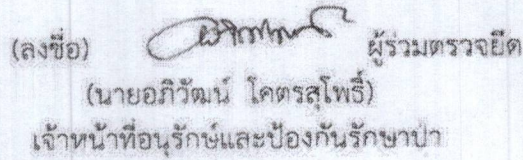 (ลงชื่อ) ผู้ร่วมตรวจยึด
(นายอภิวัฒน์ โคตรสุโพธิ์)
เจ้าหน้าที่อนุรักษ์และป้องกันรักษาป่า